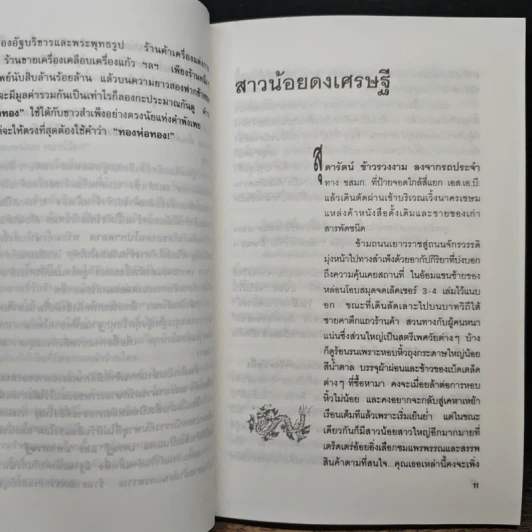 องอัฐบริขารและพระพุทธรูป ร้านค้าเครื่อง
ร้านขายเครื่องเคลือบเครื่องแก้ว ฯลฯ เพียงร้าน
พย์นับสิบล้านร้อยล้าน แล้วบนความยาวสองฟาก
จะมีมูลค่ารวมกันเป็นเท่าไรก็ลองกะประมาณกันดู คำ
ทอง" ใช้ได้กับชาวสำเพ็งอย่างตรงนัยแห่งคำพังเพย
จะให้ตรงที่สุดต้องใช้คำว่า "ทองห่อทอง!"
สาวน้อยดงเศรษฐี
สุดารัตน์ ข้าวรวงงาม ลงจากรถประจำ
ทาง ขสมก. ที่ป้ายจอดใกล้สี่แยก เอส.เอ.บี.
แล้วเดินตัดผ่านเข้าบริเวณเวิ้งนาครเขษม
แหล่งค้าหนังสือดั้งเดิมและขายของเก่า
สารพัดชนิด
ข้ามถนนเยาวราชสู่ถนนจักรวรรดิ
มุ่งหน้าไปทางสำเพ็งด้วยอากัปกิริยาที่บ่งบอก
ถึงความคุ้นเคยสถานที่ ในอ้อมแขนซ้ายของ
หล่อนโอบสมุดจดเล็คเชอร์ 3-4 เล่มไว้แนบ
อก ขณะที่เดินลัดเลาะไปบนบาทวิถีใต้
ชายคาตึกแถวร้านค้า สวนทางกับผู้คนหนา
แน่นซึ่งส่วนใหญ่เป็นสตรีเพศวัยต่างๆ บ้าง
ก็ดูร้อนรนเพราะหอบหิ้วถุงกระดาษใหญ่น้อย
สีน้ำตาล บรรจุผ้าผ่อนและข้าวของเบ็ดเตล็ด
ต่างๆ ที่ซื้อหามา คงจะเมื่อยล้าต่อการหอบ
หิ้วไม่น้อย และคงอยากจะกลับสู่เคหาเหย้า
เรือนเต็มทีแล้วเพราะเริ่มเย็นย่ำ แต่ในขณะ
เดียวกันก็มีสาวน้อยสาวใหญ่อีกมากมายที่
เตร็ดเตร่อ้อยอิ่งเลือกชมแพรพรรณและสรรพ
สินค้าตามที่สนใจ...คุณเธอเหล่านี้คงจะเพิ่ง
11